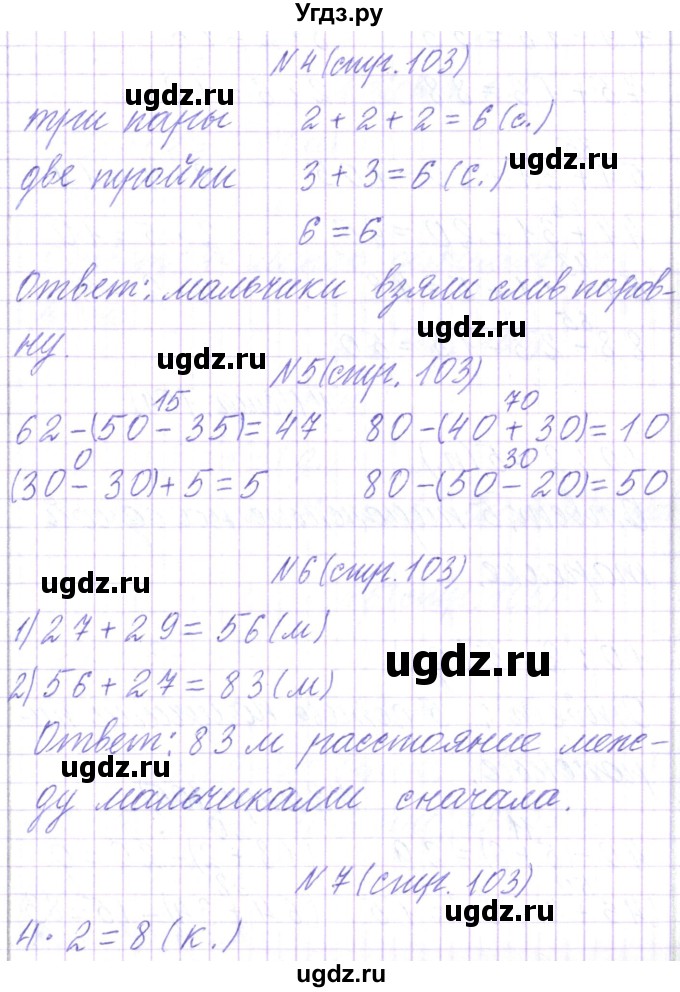 Угдз.ру
N 4 (стр. 103)
ugdz.ru
три пары 2 + 2 + 2 = 6 (с.)
ugdz.ru
две тройки 3 + 3 = 6 (с.)
6 = 6
Ответ: мальчики взяли слив поров-
ugdz.ru
ну.
ugdz.ru
N 5 (стр. 103)
15 70
62 - (50 - 35) = 47 80 - (40 + 30) = 10
0 30
(30 - 30) + 5 = 5 80 - (50 - 20) = 50
ugdz.ru
N 6 (стр. 103)
1) 27 + 29 = 56 (м)
ugdz.ru
2) 56 + 27 = 83 (м)
Ответ: 83 м расстояние меж-
ugdz.ru
ду мальчиками сначала.
N 7 (стр. 103)
ugdz.ru
4 · 2 = 8 (к.)
ugdz.ru
ugdz.ru